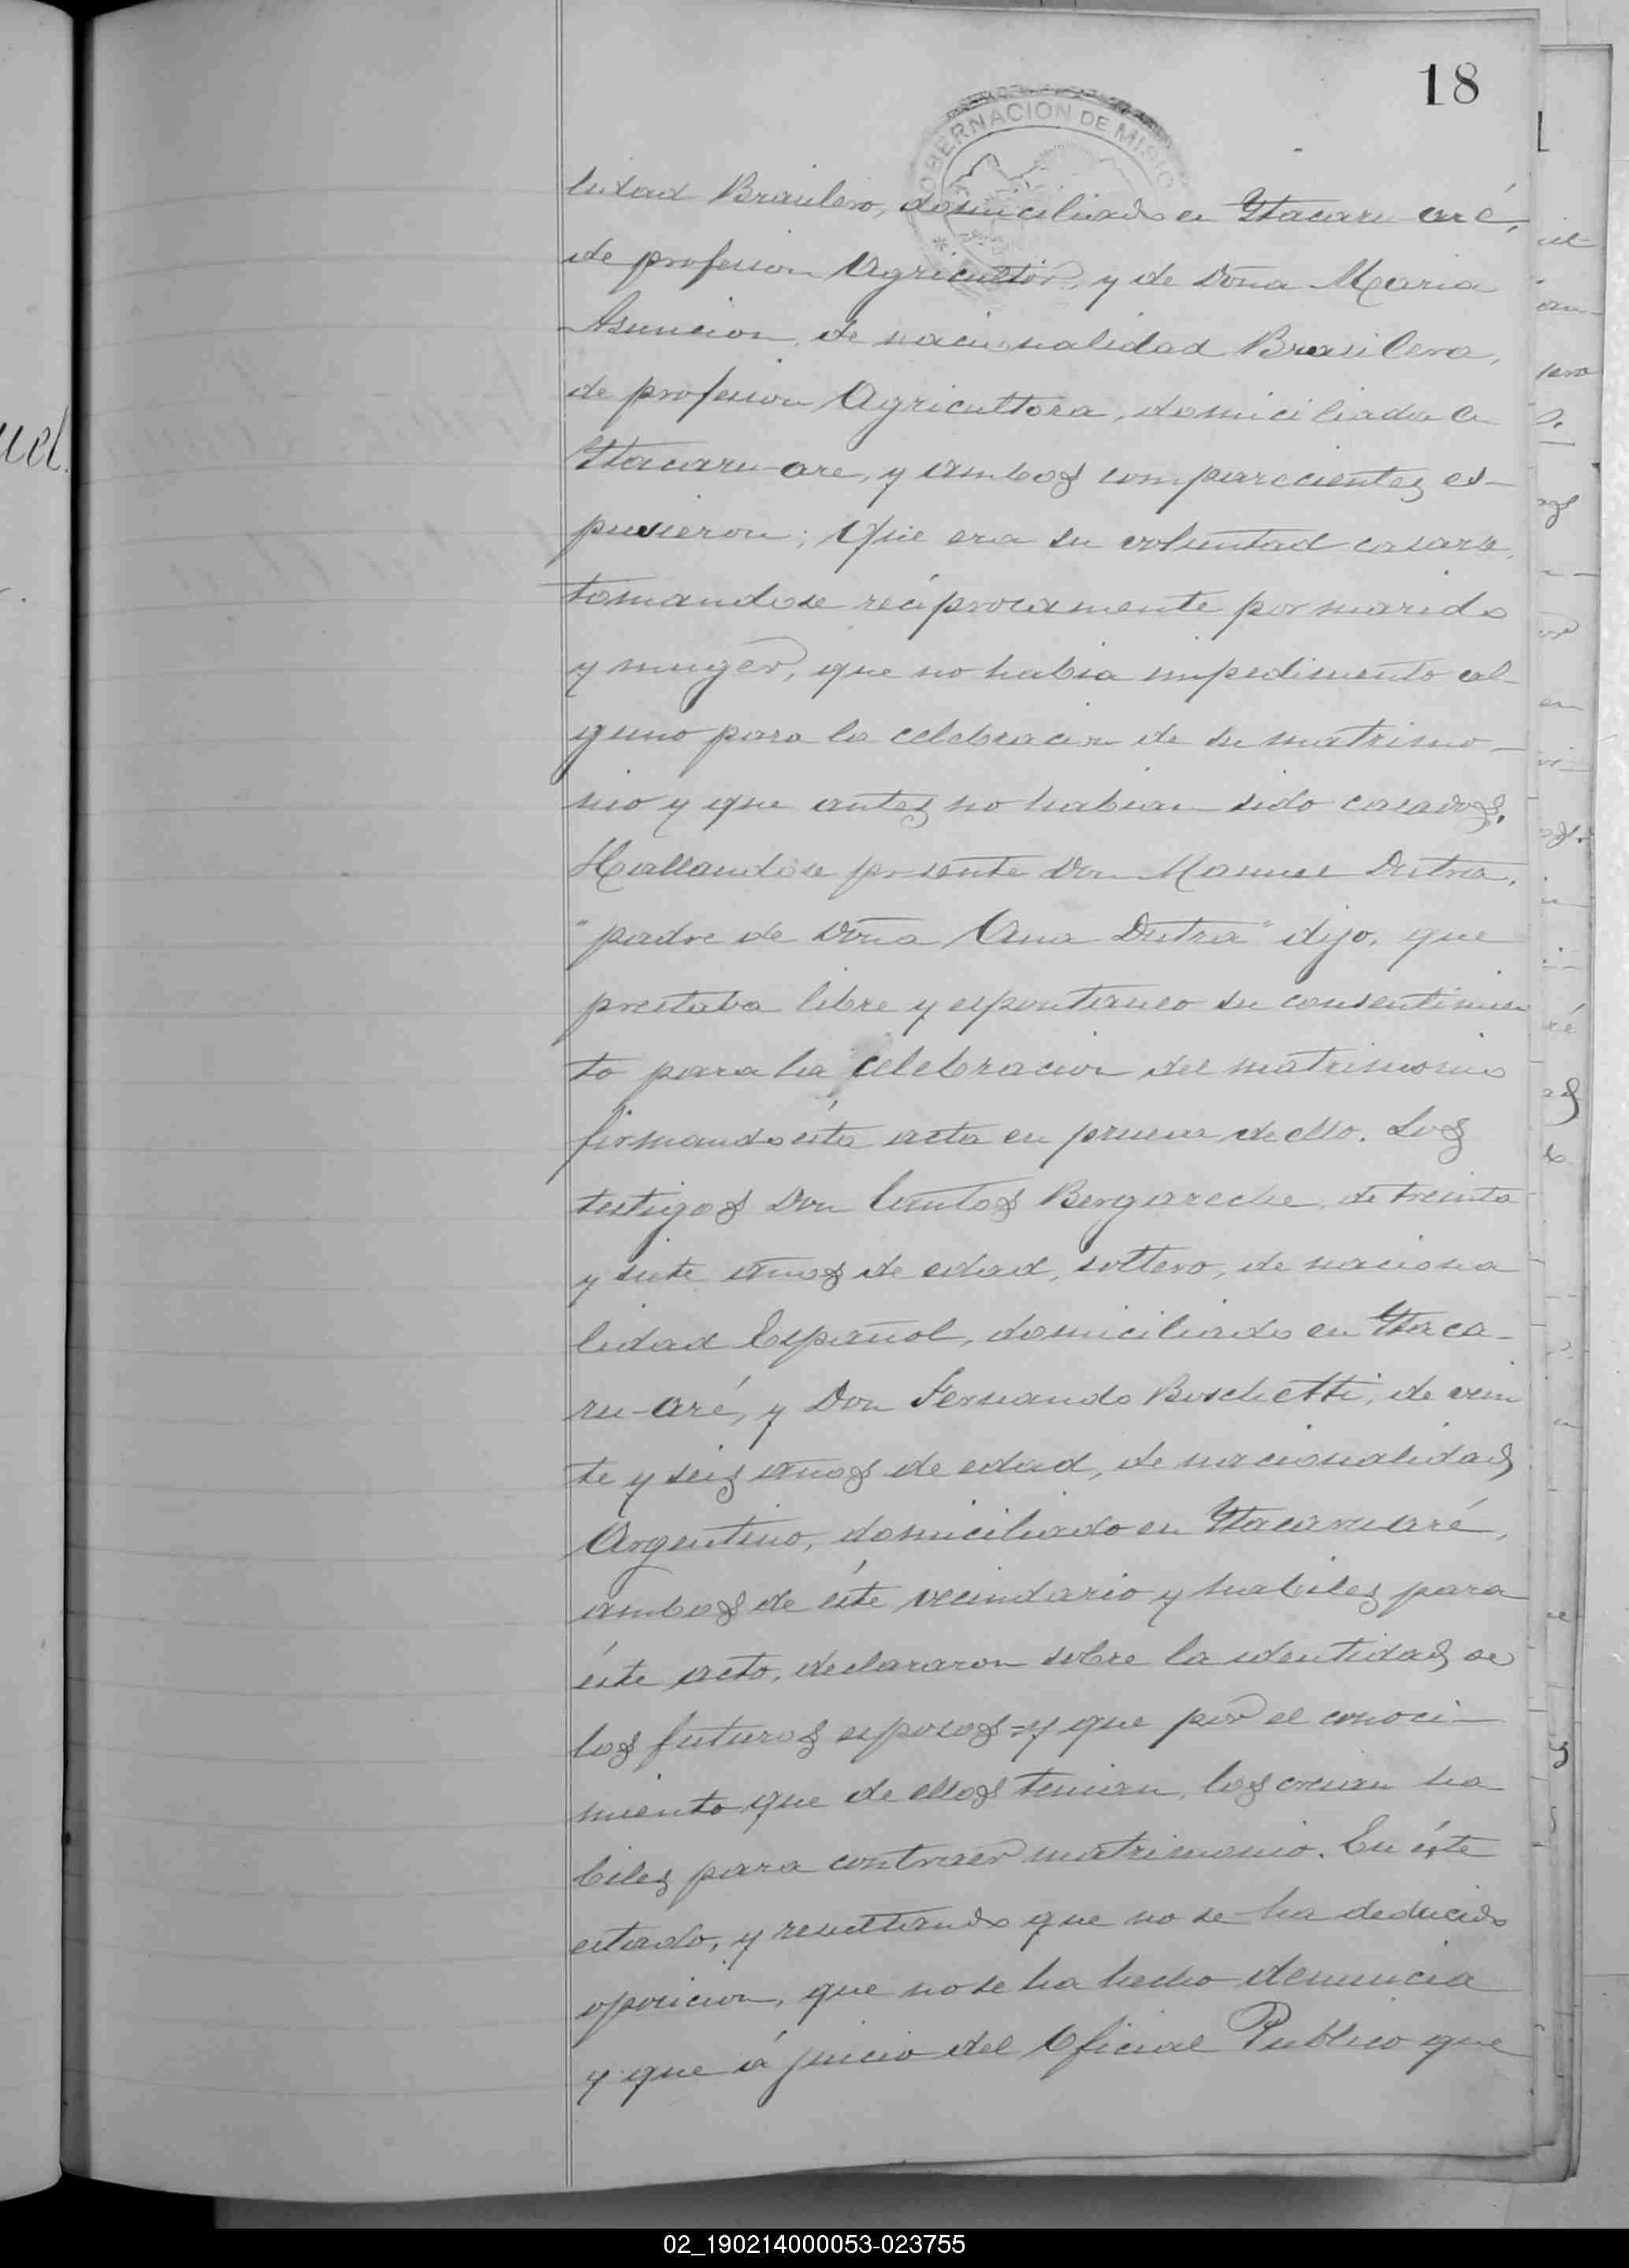 18
GOBERNACION DE MISIO
lidad Brasilero, domiciliado en Ytacaru aré,
de profesion Agricultor, y de Doña Maria
Asuncion, de nacionalidad Brasilera,
de profesion Agricultora, domiciliada en
Ytacaru-are, y ambos comparecientes es-
pusieron; Que era su voluntad casarse,
tomandose reciprocamente por marido
y muger, que no habia impedimento al-
guno para la celebracion de su matrimo-
nio y que antes no habian sido casados.
Hallandose presente Don Manuel Dutra,
"padre de Doña Ana Dutra" dijo, que
prestaba libre y espontaneo su consentimien
to para la celebracion del matrimonio
firmando ésta acta en prueva de ello. Los
testigos Don Bergareche, de treinta
y siete años de edad, soltero, de naciona
lidad Español, domiciliado en Ytaca-
ru-aré, y Don Fernando Boschetti, de vein
te y seis años de edad, de nacionalidad
Argentino, domiciliado en Ytacaruaré,
ambos de éste vecindario y habiles para
éste acto, declararon sobre la identidad de
los futuros esposos=y que por el conoci-
miento que de ellos tenian, los creian ha
biles para contraer matrimonio. En éste
estado, y resultando que no se ha deducido
oposicion, que no se ha hecho denuncia
y que á juicio del Oficial Publico que
uel.
02_190214000053-023755